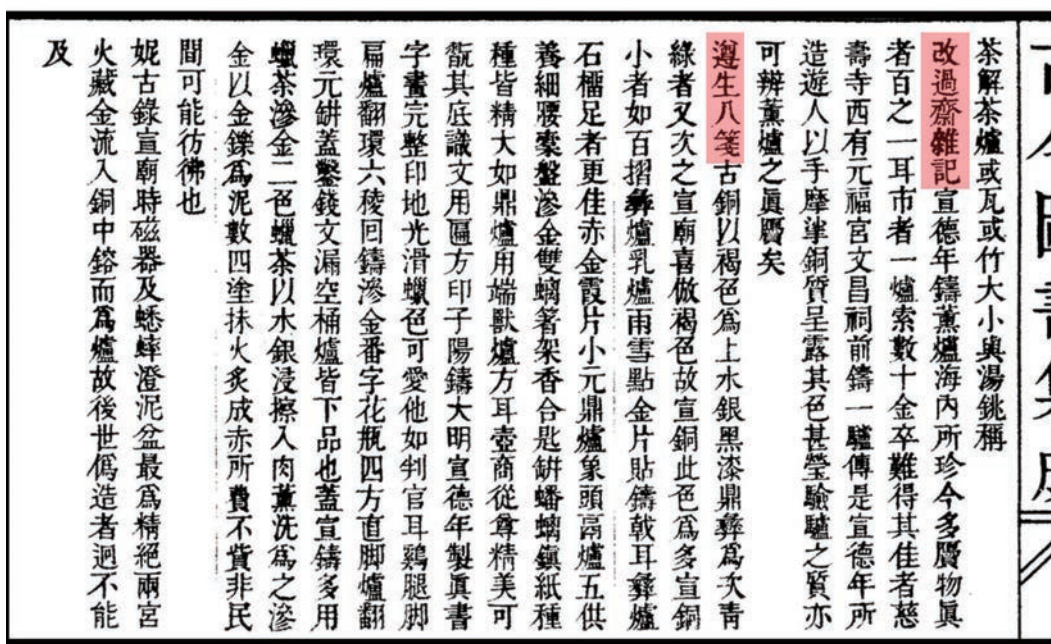 茶解茶爐或瓦或竹大小與湯銚稱
改過齋雜記宣德年鑄薰爐海內所珍今多贗物眞
者百之一耳市者一爐索數十金卒難得其佳者慈
壽寺西有元福宮文昌祠前鑄一驢傳是宣德年所
造遊人以手摩挲銅質呈露其色甚瑩驗驢之質亦
可辨薰爐之眞贗矣
遵生八箋古銅以褐色爲上水銀黑漆鼎彝爲次靑
綠者又次之宣廟喜倣褐色故宣銅此色爲多宣銅
小者如百摺彝爐乳爐雨雪點金片貼鑄戟耳彝爐
石榴足者更佳赤金霞片小元鼎爐象頭鬲爐五供
養細腰橐盤滲金雙螭箸架香合匙缾蟠螭鎭紙種
種皆精大如鼎爐用端獸爐方耳壺商從尊精美可
翫其底識文用匾方印子陽鑄大明宣德年製眞書
字畫完整印地光滑蠟色可愛他如判官耳鷄腿脚
扁爐翻環六稜回鑄滲金番字花瓶四方直脚爐翻
環元缾蓋鏨錢文漏空桶爐皆下品也蓋宣鑄多用
蠟茶滲金二色蠟茶以水銀浸擦入肉薰洗爲之滲
金以金鑠爲泥數四塗抹火炙成赤所費不貲非民
間可能彷彿也
妮古錄宣廟時磁器及蟋蟀澄泥盆最爲精絕兩宮
火藏金流入銅中鎔而爲爐故後世僞造者迥不能
及